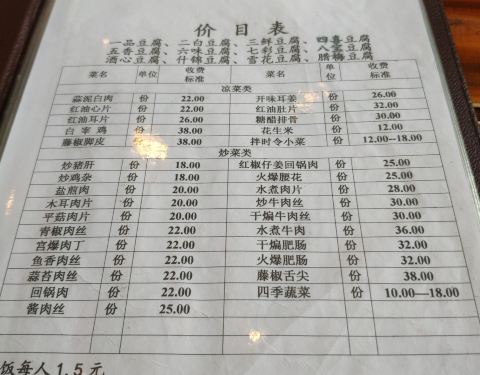 价目表
一品豆腐、二白豆腐、三鲜豆腐、四喜豆腐
五香豆腐、六味豆腐、七彩豆腐、八宝豆腐
酒心豆腐、什锦豆腐、雪花豆腐、腊梅豆腐
菜名 单位 收费标准 菜名 单位 收费标准
凉菜类
蒜泥白肉 份 22.00 开味耳姜 份 26.00
红油心片 份 22.00 红油肚片 份 32.00
红油耳片 份 26.00 糖醋排骨 份 30.00
白宰鸡 份 38.00 花生米 份 12.00
藤椒脚皮 份 38.00 拌时令小菜 份 12.00—18.00
炒菜类
炒猪肝 份 18.00 红椒仔姜回锅肉 份 25.00
炒鸡杂 份 18.00 火爆腰花 份 25.00
盐煎肉 份 20.00 水煮肉片 份 28.00
木耳肉片 份 20.00 炒牛肉丝 份 30.00
平菇肉片 份 20.00 干煸牛肉丝 份 30.00
青椒肉丝 份 22.00 水煮牛肉 份 36.00
宫爆肉丁 份 22.00 干煸肥肠 份 32.00
鱼香肉丝 份 22.00 火爆肥肠 份 32.00
蒜苔肉丝 份 22.00 藤椒舌尖 份 38.00
回锅肉 份 22.00 四季蔬菜 份 10.00—18.00
酱肉丝 份 25.00
饭每人1.5元